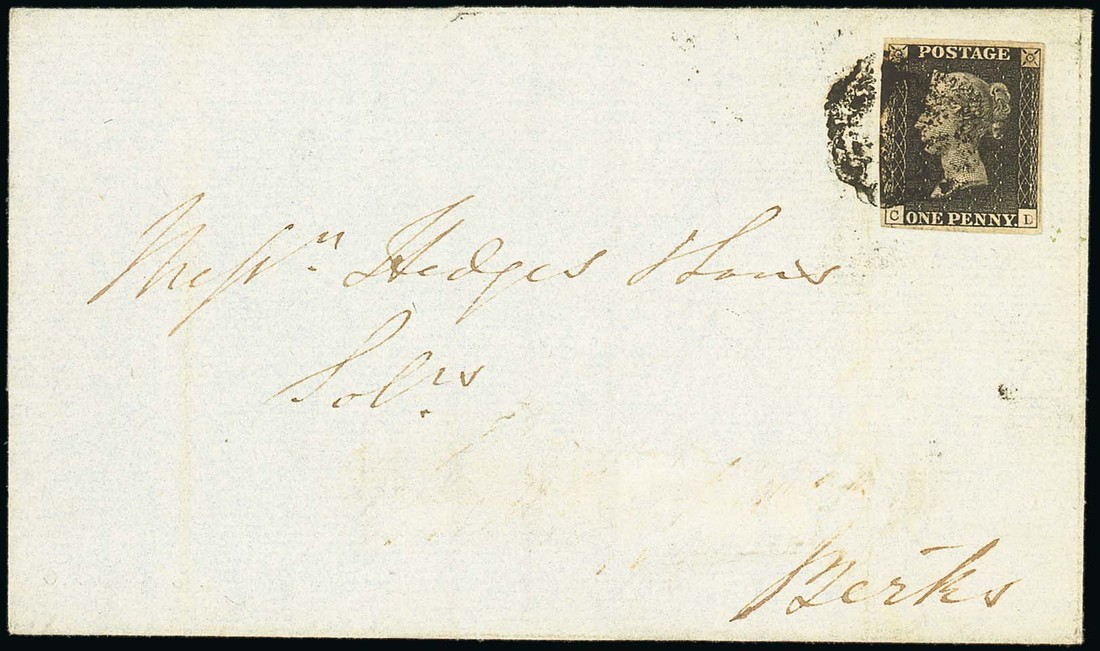 POSTAGE
C ONE PENNY. L
Messrs Hedges & Sons
Solrs.
Berks